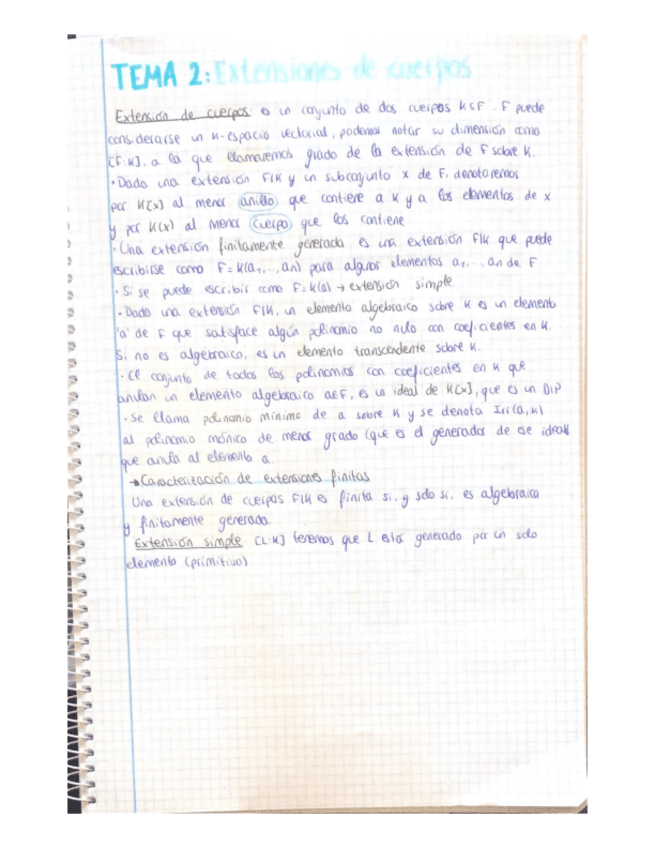 TEMA 2: Extensiones de cuerpos
Extensión de cuerpos es un conjunto de dos cuerpos K≤F. F puede
considerarse un K-espacio vectorial, podemos notar su dimensión como
[F:K], a la que llamaremos grado de la extensión de F sobre K.
· Dada una extensión F/K y un subconjunto X de F, denotaremos
por K[X] al menor anillo que contiene a K y a los elementos de X
y por K(X) al menor cuerpo que los contiene
· Una extensión finitamente generada es una extensión F/K que puede
escribirse como F=K(a1,...,an) para algunos elementos a1,...,an de F
· Si se puede escribir como F=K(a) → extensión simple
· Dada una extensión F/K, un elemento algebraico sobre K es un elemento
'a' de F que satisface algún polinomio no nulo con coeficientes en K.
Si no es algebraico, es un elemento transcendente sobre K.
· El conjunto de todos los polinomios con coeficientes en K que
anulan un elemento algebraico a∈F, es un ideal de K[X], que es un DIP
· Se llama polinomio mínimo de a sobre K y se denota Irr(a,K)
al polinomio mónico de menor grado (que es el generador de ese ideal)
que anula al elemento a.
→ Caracterización de extensiones finitas
Una extensión de cuerpos F/K es finita si, y sólo si, es algebraica
y finitamente generada
Extensión simple [L:K] tenemos que L está generado por un solo
elemento (primitivo)